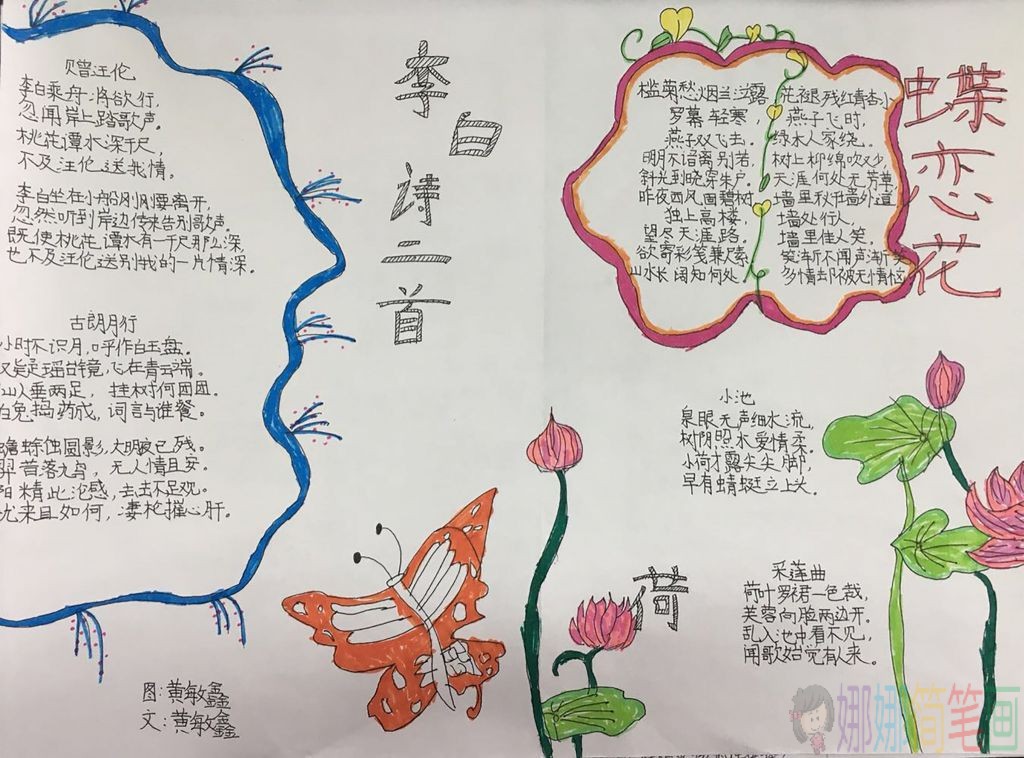 李白诗二首
赠汪伦
李白乘舟将欲行,
忽闻岸上踏歌声。
桃花谭水深千尺,
不及汪伦送我情。
李白坐在小船刚刚要离开,
忽然听到岸边传来告别歌声。
既使桃花谭水有一千尺那么深,
也不及汪伦送别我的一片情深。
古朗月行
小时不识月,呼作白玉盘。
又疑是瑶台镜,飞在青云端。
仙人垂两足,挂树何团团。
白兔捣药成,词言与谁餐。
蟾蜍蚀圆影,大明夜已残。
羿昔落九乌,天人情且安。
阳精此沦感,去去不足观。
忧来且如何,凄枪摧心肝。
图:黄敏鑫
文:黄敏鑫
蝶恋花
槛菊愁烟兰泣露
罗幕轻寒,
燕子双飞去。
明月不谙离别苦,
斜光到晓穿朱户。
昨夜西风凋碧树
独上高楼,
望尽天涯路。
欲寄彩笺兼尺素
山水长阔知何处
花褪残红青杏小
燕子飞时,
绿水人家绕。
树上柳绵吹又少,
天涯何处无芳草
墙里秋千墙外道
墙处行人,
墙里佳人笑,
笑渐不闻声渐
多情却被无情恼
小池
泉眼无声细水流,
树阴照水爱情柔。
小荷才露尖尖脚,
早有蜻蜓立上头。
荷
采莲曲
荷叶罗裙一色裁,
芙蓉向脸两边开。
乱入池中看不见,
闻歌始觉有人来。
娜娜简笔画